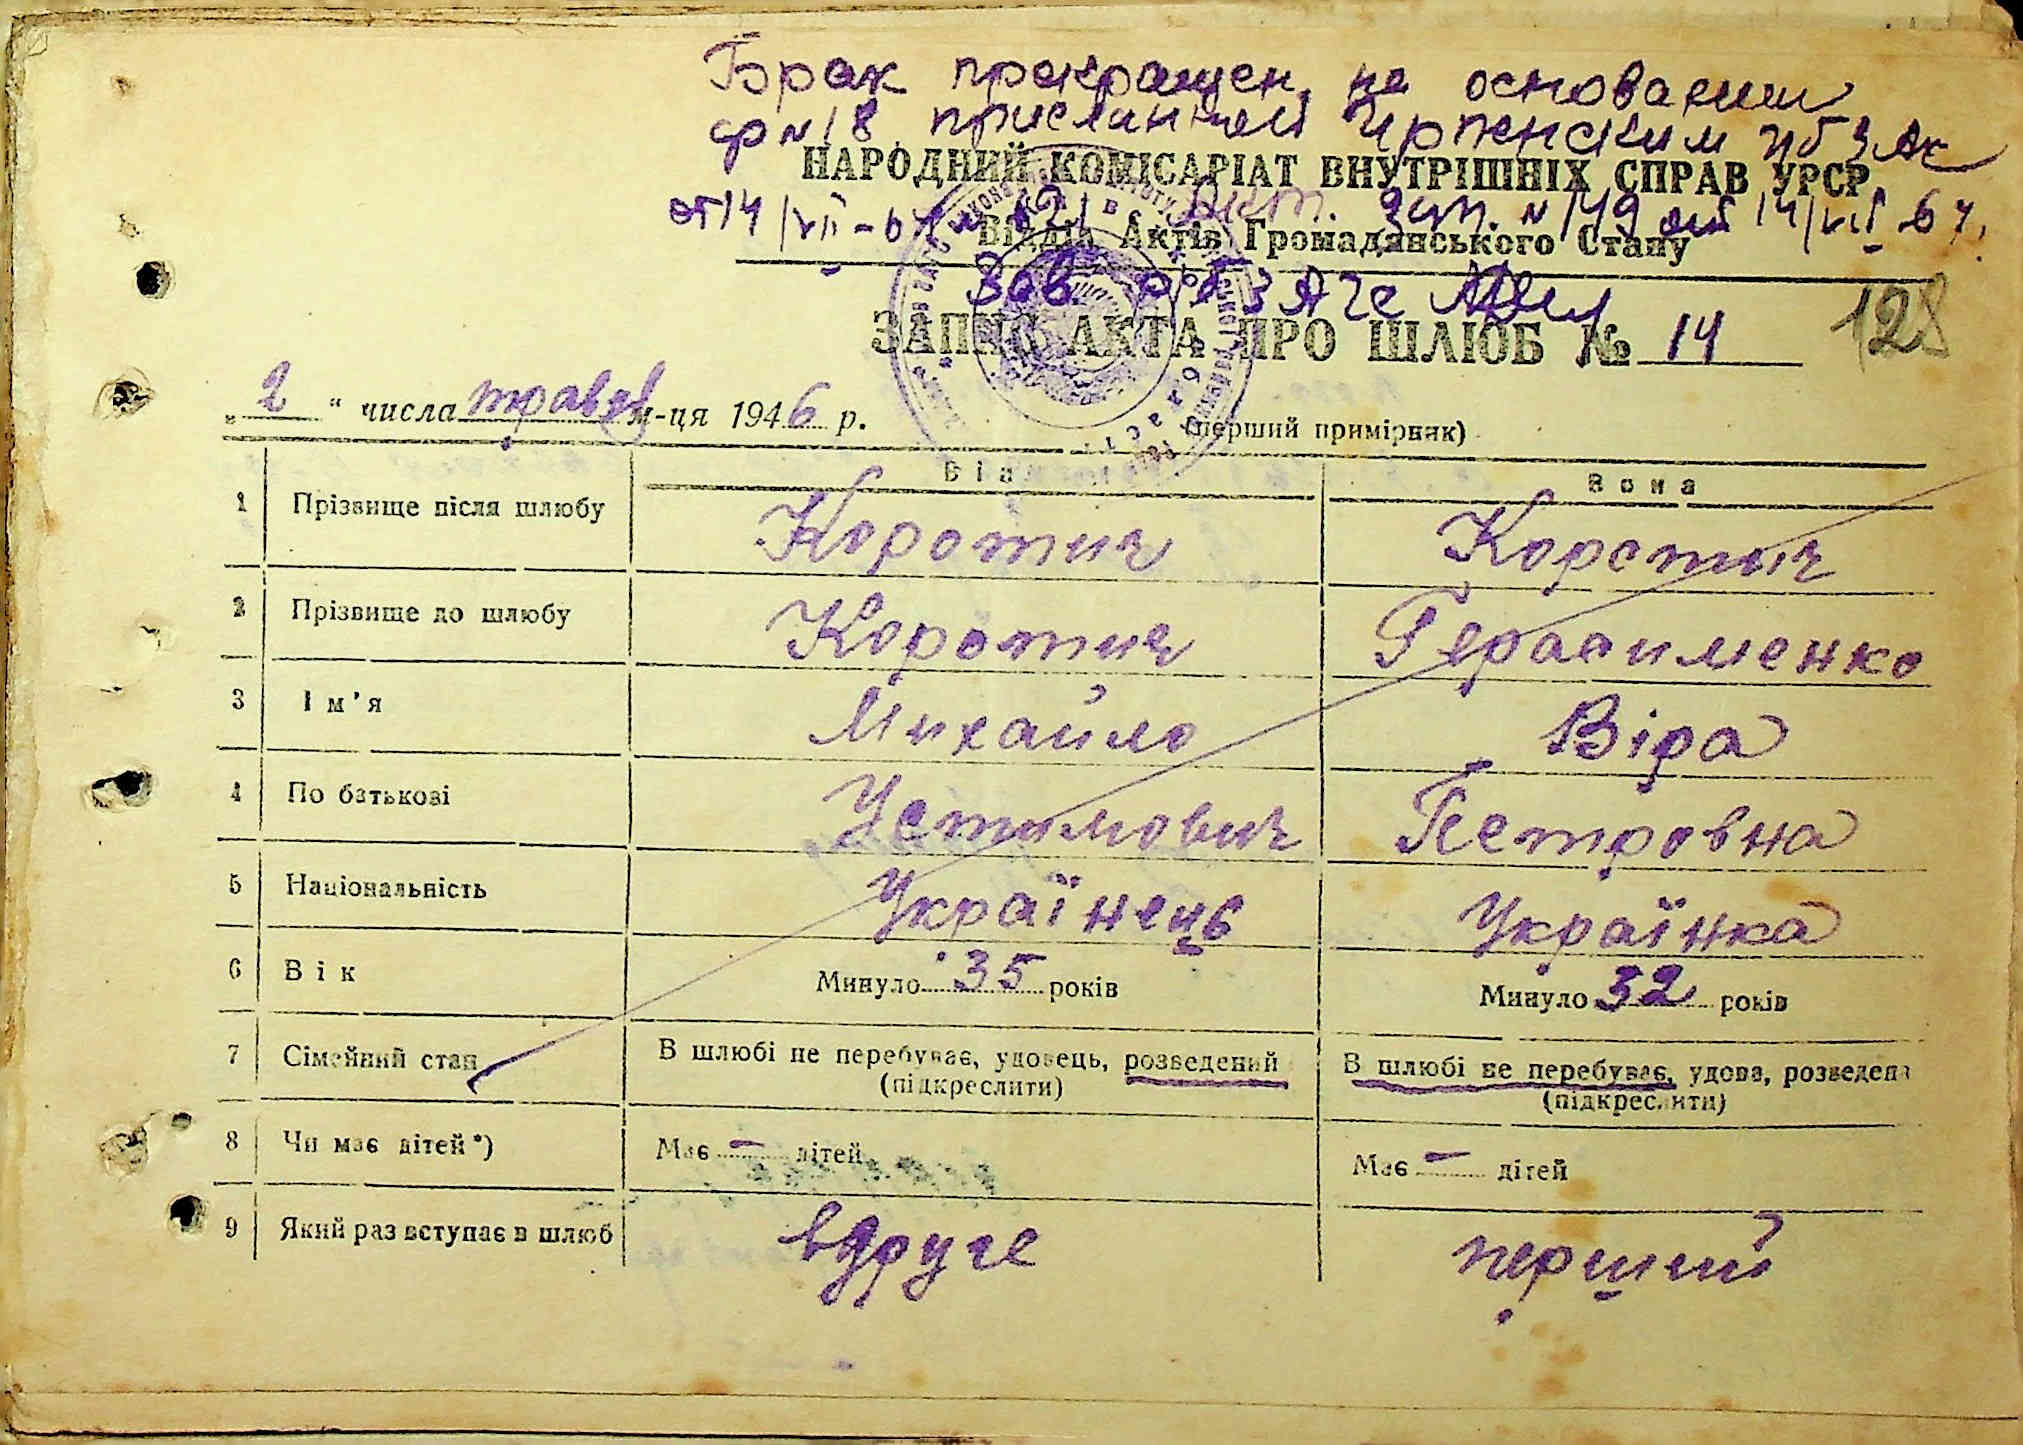 Брак прекращен на основании
ф №18 присланной Ирпенским
НАРОДНИЙ КОМІСАРІАТ ВНУТРІШНІХ СПРАВ УРСР
от 14/VII-67 Акт. зап. №149 от 14/VII 67.
Відділ Актів Громадянського Стану
Зав.
ЗАПИС АКТА ПРО ШЛЮБ № 14
128
„ 2 " числа травня м-ця 1946 р.
(перший примірник)
Він Вона
1 Прізвище після шлюбу Коротич Коротич
2 Прізвище до шлюбу Коротич Герасименко
3 Ім'я Михайло Віра
4 По батькові Устимович Петровна
5 Національність Українець Українка
6 Вік Минуло 35 років Минуло 32 років
7 Сімейний стан В шлюбі не перебуває, удовець, розведений В шлюбі не перебуває, удова, розведена
(підкреслити) (підкреслити)
8 Чи має дітей*) Має – дітей Має – дітей
9 Який раз вступає в шлюб вдруге перший